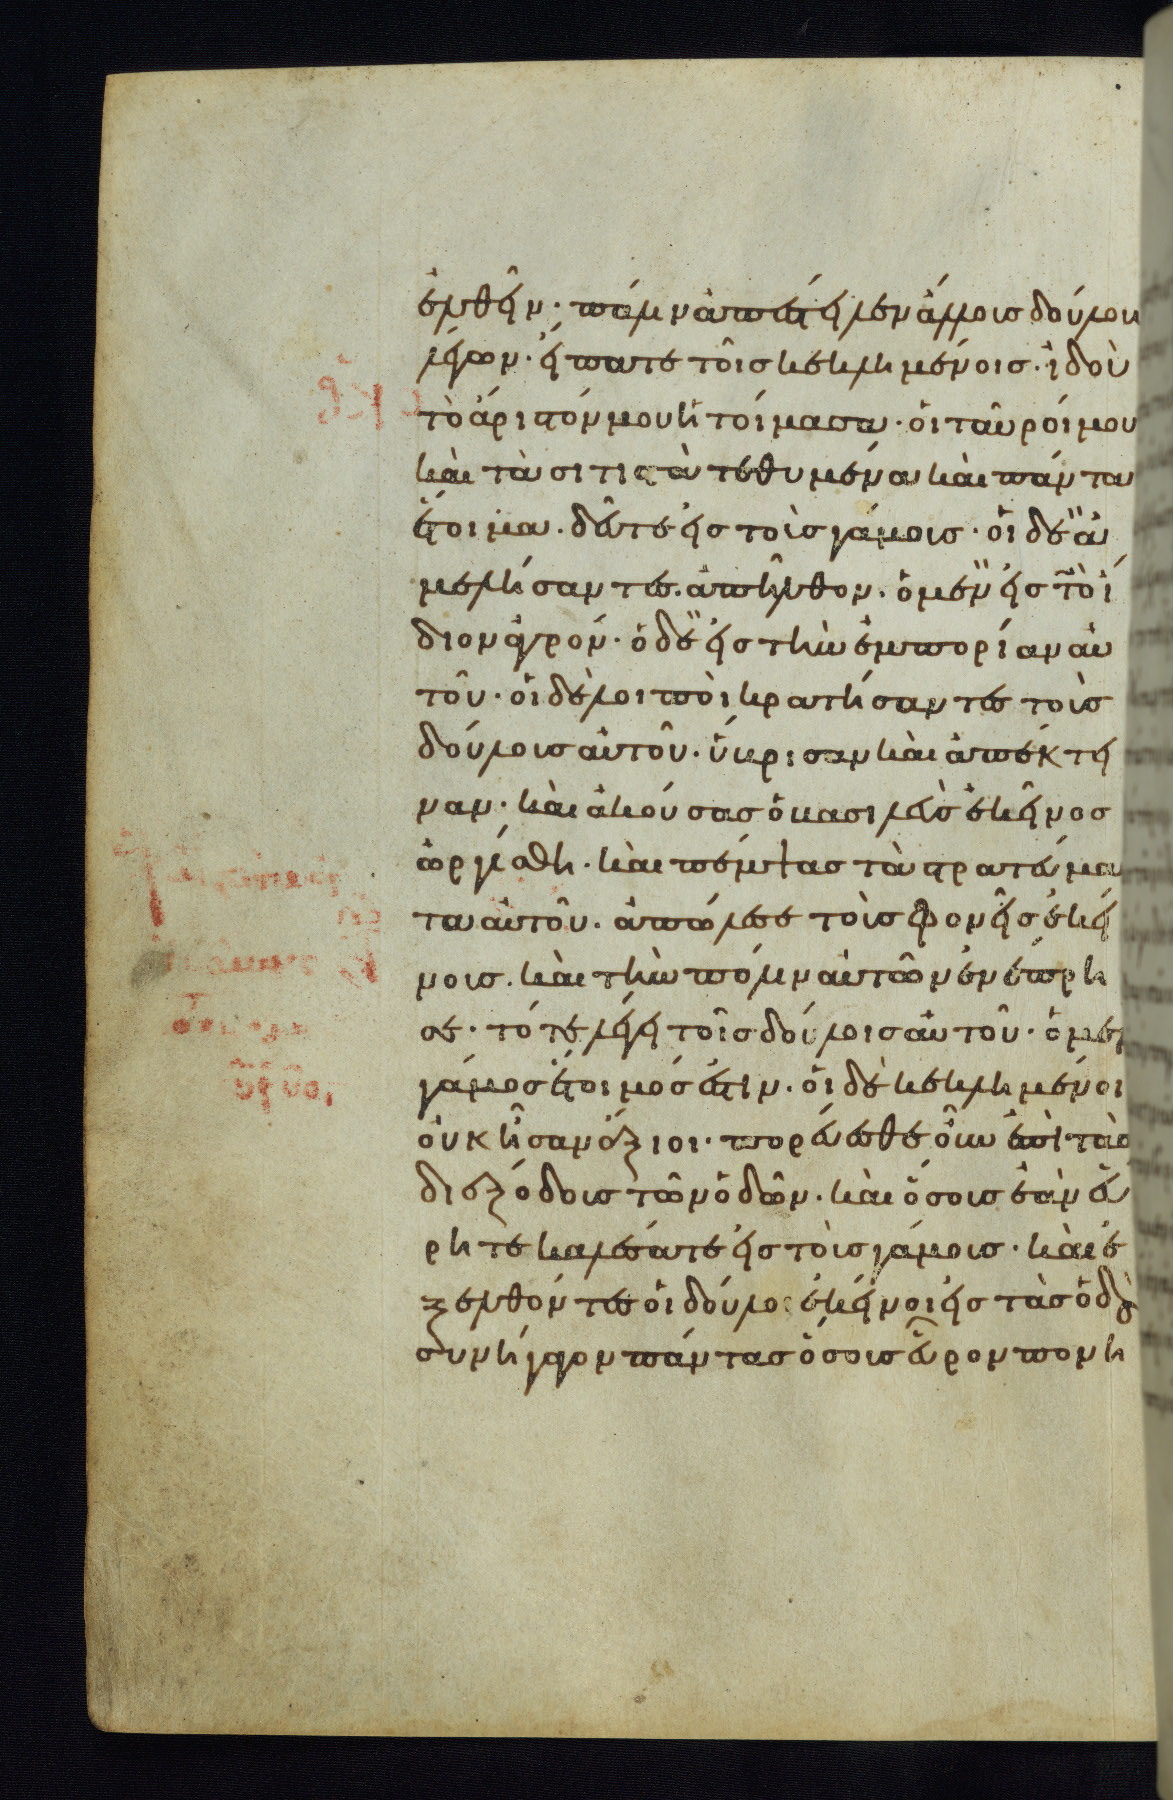 ἐλθεῖν· πάλιν ἀπέστειλεν ἄλλους δούλους
λέγων· εἴπατε τοῖς κεκλημένοις· ἰδοὺ
τὸ ἄριστόν μου ἡτοίμασα· οἱ ταῦροί μου
καὶ τὰ σιτιστὰ τεθυμένα καὶ πάντα
ἕτοιμα· δεῦτε εἰς τοὺς γάμους· οἱ δὲ ἀ
μελήσαντες ἀπῆλθον· ὁ μὲν εἰς τὸ ἴ
διον ἀγρόν· ὁ δὲ εἰς τὴν ἐμπορίαν αὐ
τοῦ· οἱ δὲ λοιποὶ κρατήσαντες τοὺς
δούλους αὐτοῦ· ὕβρισαν καὶ ἀπέκτει
ναν· καὶ ἀκούσας ὁ βασιλεὺς ἐκεῖνος
ὠργίσθη· καὶ πέμψας τὰ στρατεύμα
τα αὐτοῦ· ἀπώλεσε τοὺς φονεῖς ἐκεί
νους· καὶ τὴν πόλιν αὐτῶν ἐνέπρη
σε· τότε λέγει τοῖς δούλοις αὐτοῦ· ὁ μὲν
γάμος ἕτοιμός ἐστιν· οἱ δὲ κεκλημένοι
οὐκ ἦσαν ἄξιοι· πορεύεσθε οὖν ἐπὶ τὰς
διεξόδους τῶν ὁδῶν· καὶ ὅσους ἐὰν εὕ
ρητε καλέσατε εἰς τοὺς γάμους· καὶ ἐ
ξελθόντες οἱ δοῦλοι ἐκεῖνοι εἰς τὰς ὁδοὺς
συνήγαγον πάντας ὅσους εὗρον πονη